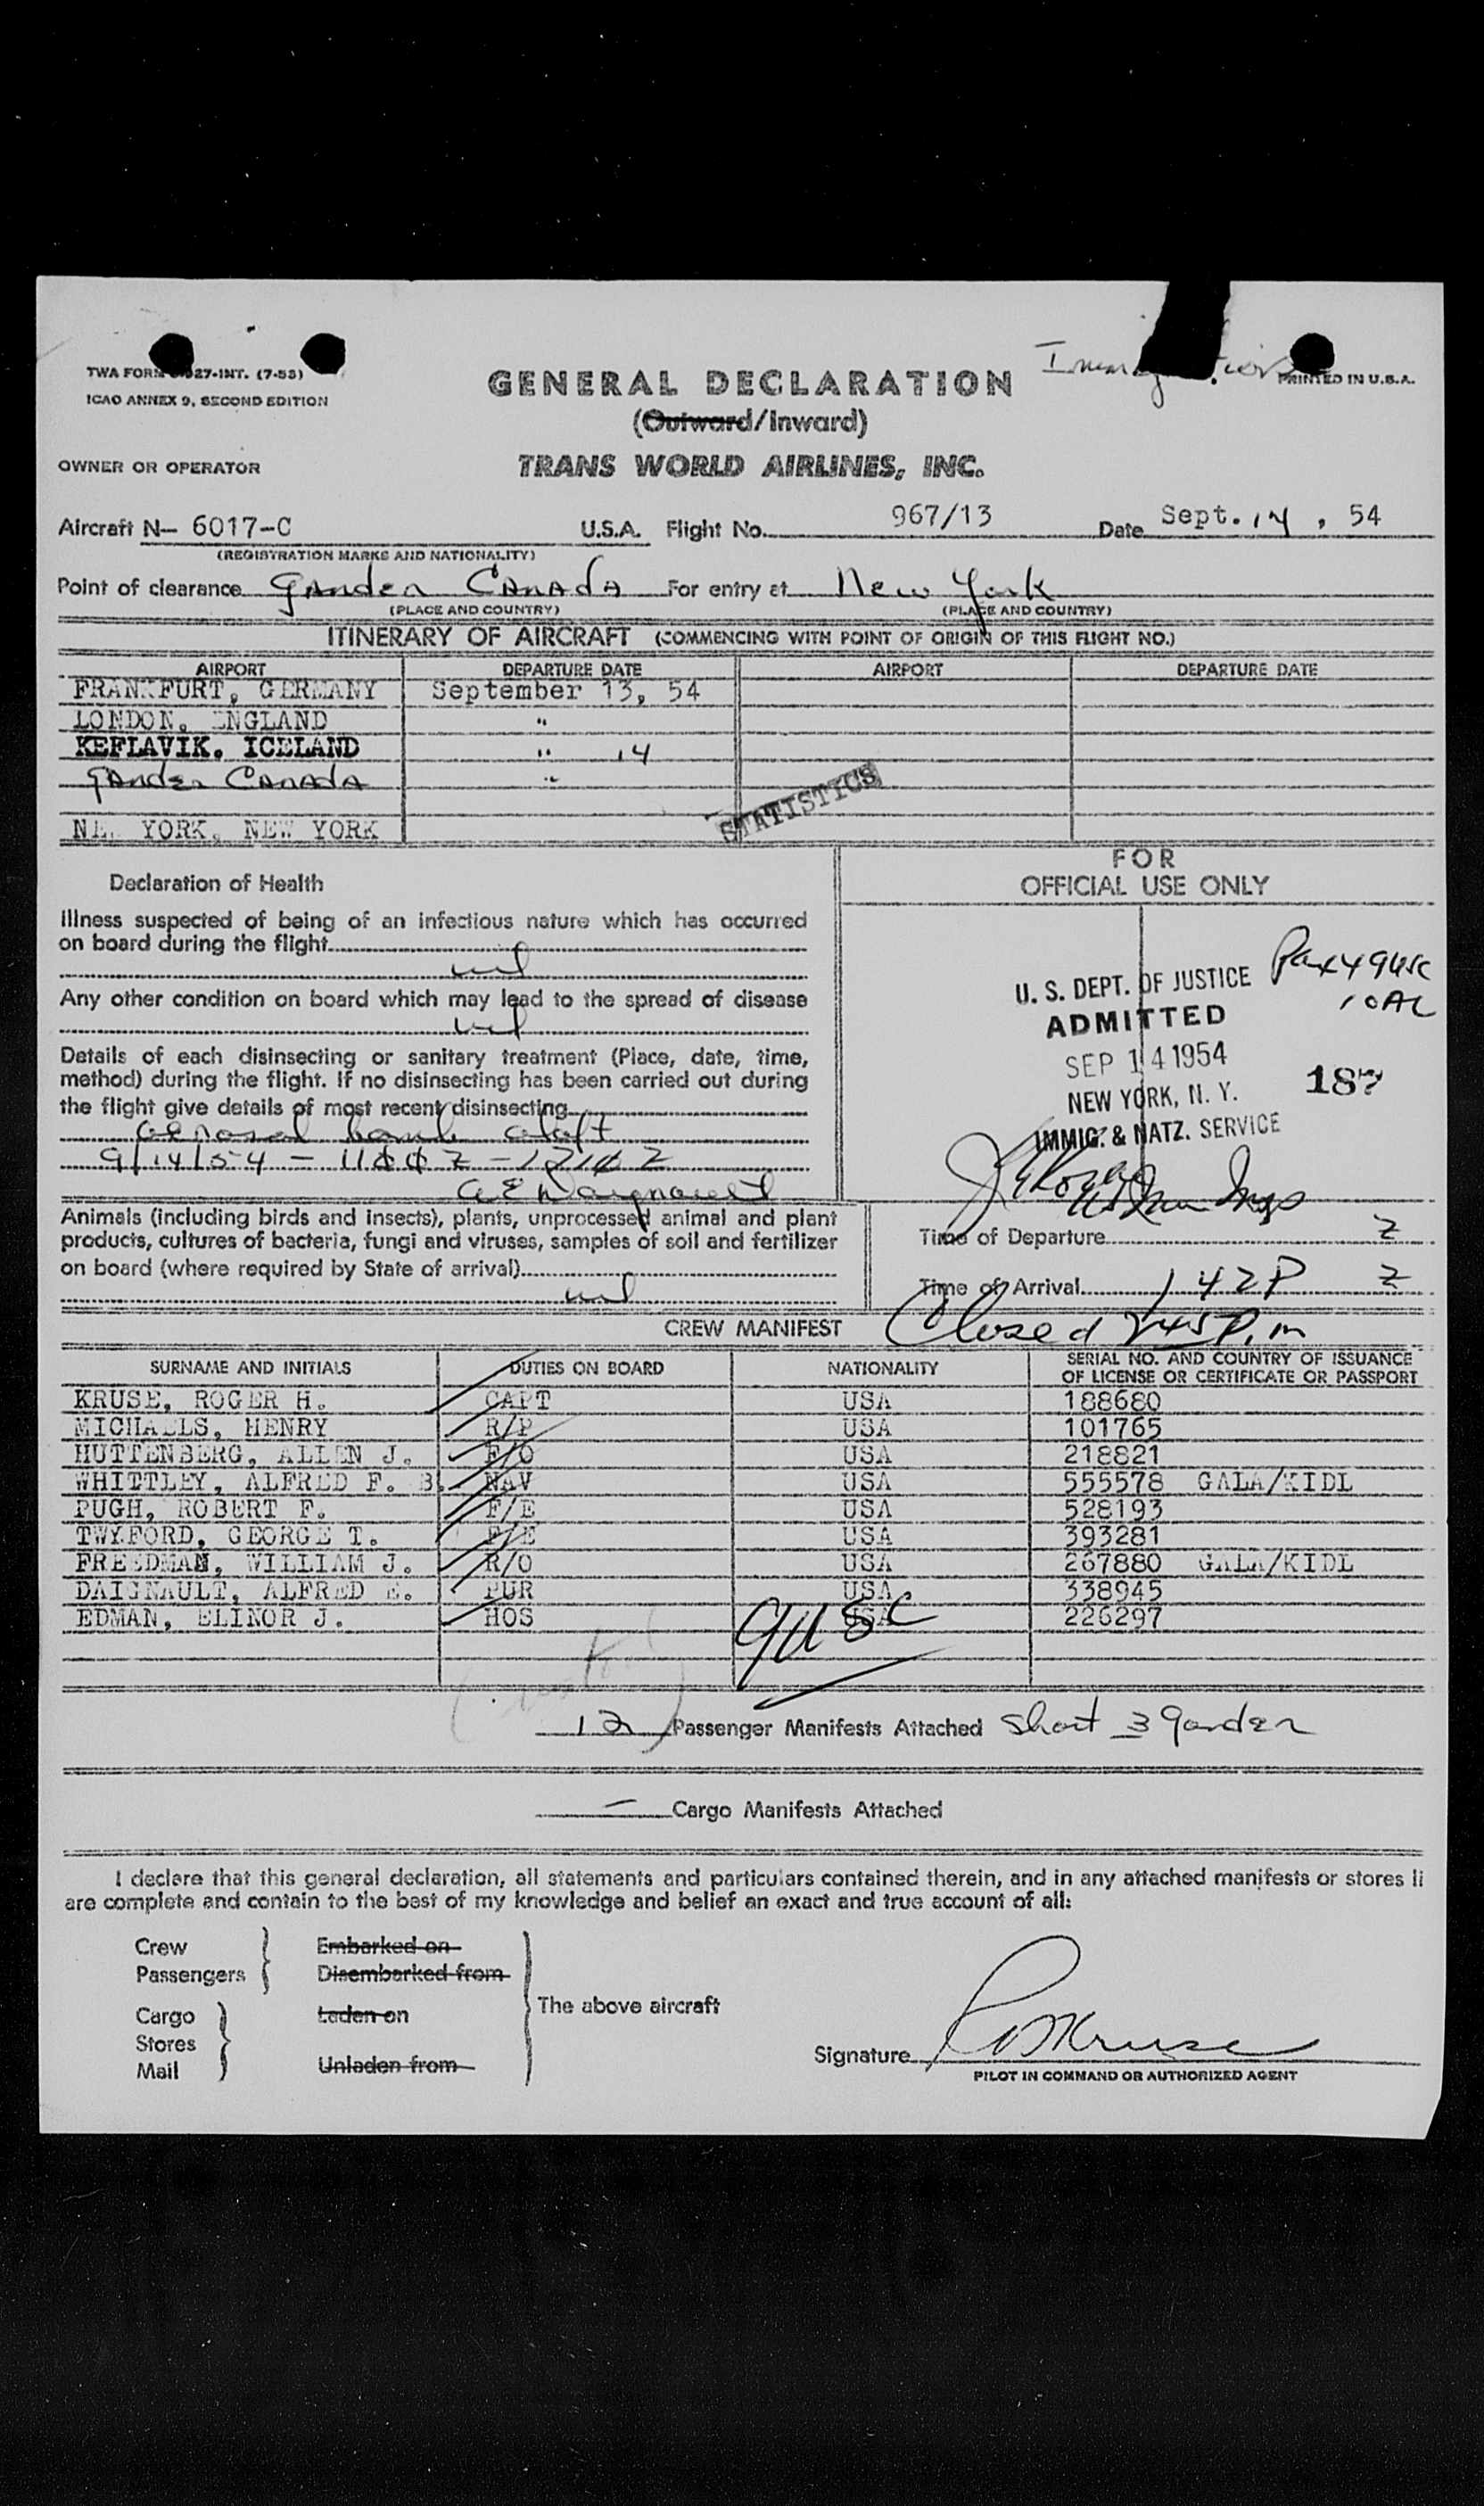 Immig
TWA FORM 27-INT. (7-53)
PRINTED IN U.S.A.
ICAO ANNEX 9, SECOND EDITION
GENERAL DECLARATION
(Outward/Inward)
OWNER OR OPERATOR
TRANS WORLD AIRLINES, INC.
Aircraft N- 6017-C U.S.A. Flight No. 967/13 Date Sept. 14, 54
(REGISTRATION MARKS AND NATIONALITY)
Point of clearance Gander CANADA For entry at New York
(PLACE AND COUNTRY) (PLACE AND COUNTRY)
ITINERARY OF AIRCRAFT (COMMENCING WITH POINT OF ORIGIN OF THIS FLIGHT NO.)
AIRPORT DEPARTURE DATE AIRPORT DEPARTURE DATE
FRANKFURT, GERMANY September 13, 54
LONDON, ENGLAND "
KEFLAVIK, ICELAND " 14
Gander CANADA "
STATISTICS
NEW YORK, NEW YORK
FOR
OFFICIAL USE ONLY
Declaration of Health
Illness suspected of being of an infectious nature which has occurred
on board during the flight
nil
Any other condition on board which may lead to the spread of disease
nil
Details of each disinsecting or sanitary treatment (Place, date, time,
method) during the flight. If no disinsecting has been carried out during
the flight give details of most recent disinsecting
aerosol bomb aloft
9/14/54 - 1200Z - 1210Z
Pax 49 USC
10 AL
U. S. DEPT. OF JUSTICE
ADMITTED
SEP 14 1954
NEW YORK, N. Y.
IMMIG. & NATZ. SERVICE
187
Animals (including birds and insects), plants, unprocessed animal and plant
products, cultures of bacteria, fungi and viruses, samples of soil and fertilizer
on board (where required by State of arrival)
nil
Time of Departure Z
Time of Arrival 142P Z
CREW MANIFEST Closed 245 P.m
SURNAME AND INITIALS DUTIES ON BOARD NATIONALITY SERIAL NO. AND COUNTRY OF ISSUANCE
OF LICENSE OR CERTIFICATE OR PASSPORT
KRUSE, ROGER H. CAPT USA 188680
MICHAELS, HENRY R/P USA 101765
HUTTENBERG, ALLEN J. F/O USA 218821
WHITTLEY, ALFRED F. B. NAV USA 555578 GALA/KIDL
PUGH, ROBERT F. F/E USA 528193
TWYFORD, GEORGE T. F/E USA 393281
FREEDMAN, WILLIAM J. R/O USA 267880 GALA/KIDL
DAIGNAULT, ALFRED E. PUR USA 338945
EDMAN, ELINOR J. HOS USA 226297
9 USC
12 Passenger Manifests Attached Short 3 Gander
— Cargo Manifests Attached
I declare that this general declaration, all statements and particulars contained therein, and in any attached manifests or stores li
are complete and contain to the best of my knowledge and belief an exact and true account of all:
Crew Embarked on
Passengers Disembarked from
Cargo Laden on The above aircraft
Stores
Mail Unladen from
Signature R H Kruse
PILOT IN COMMAND OR AUTHORIZED AGENT